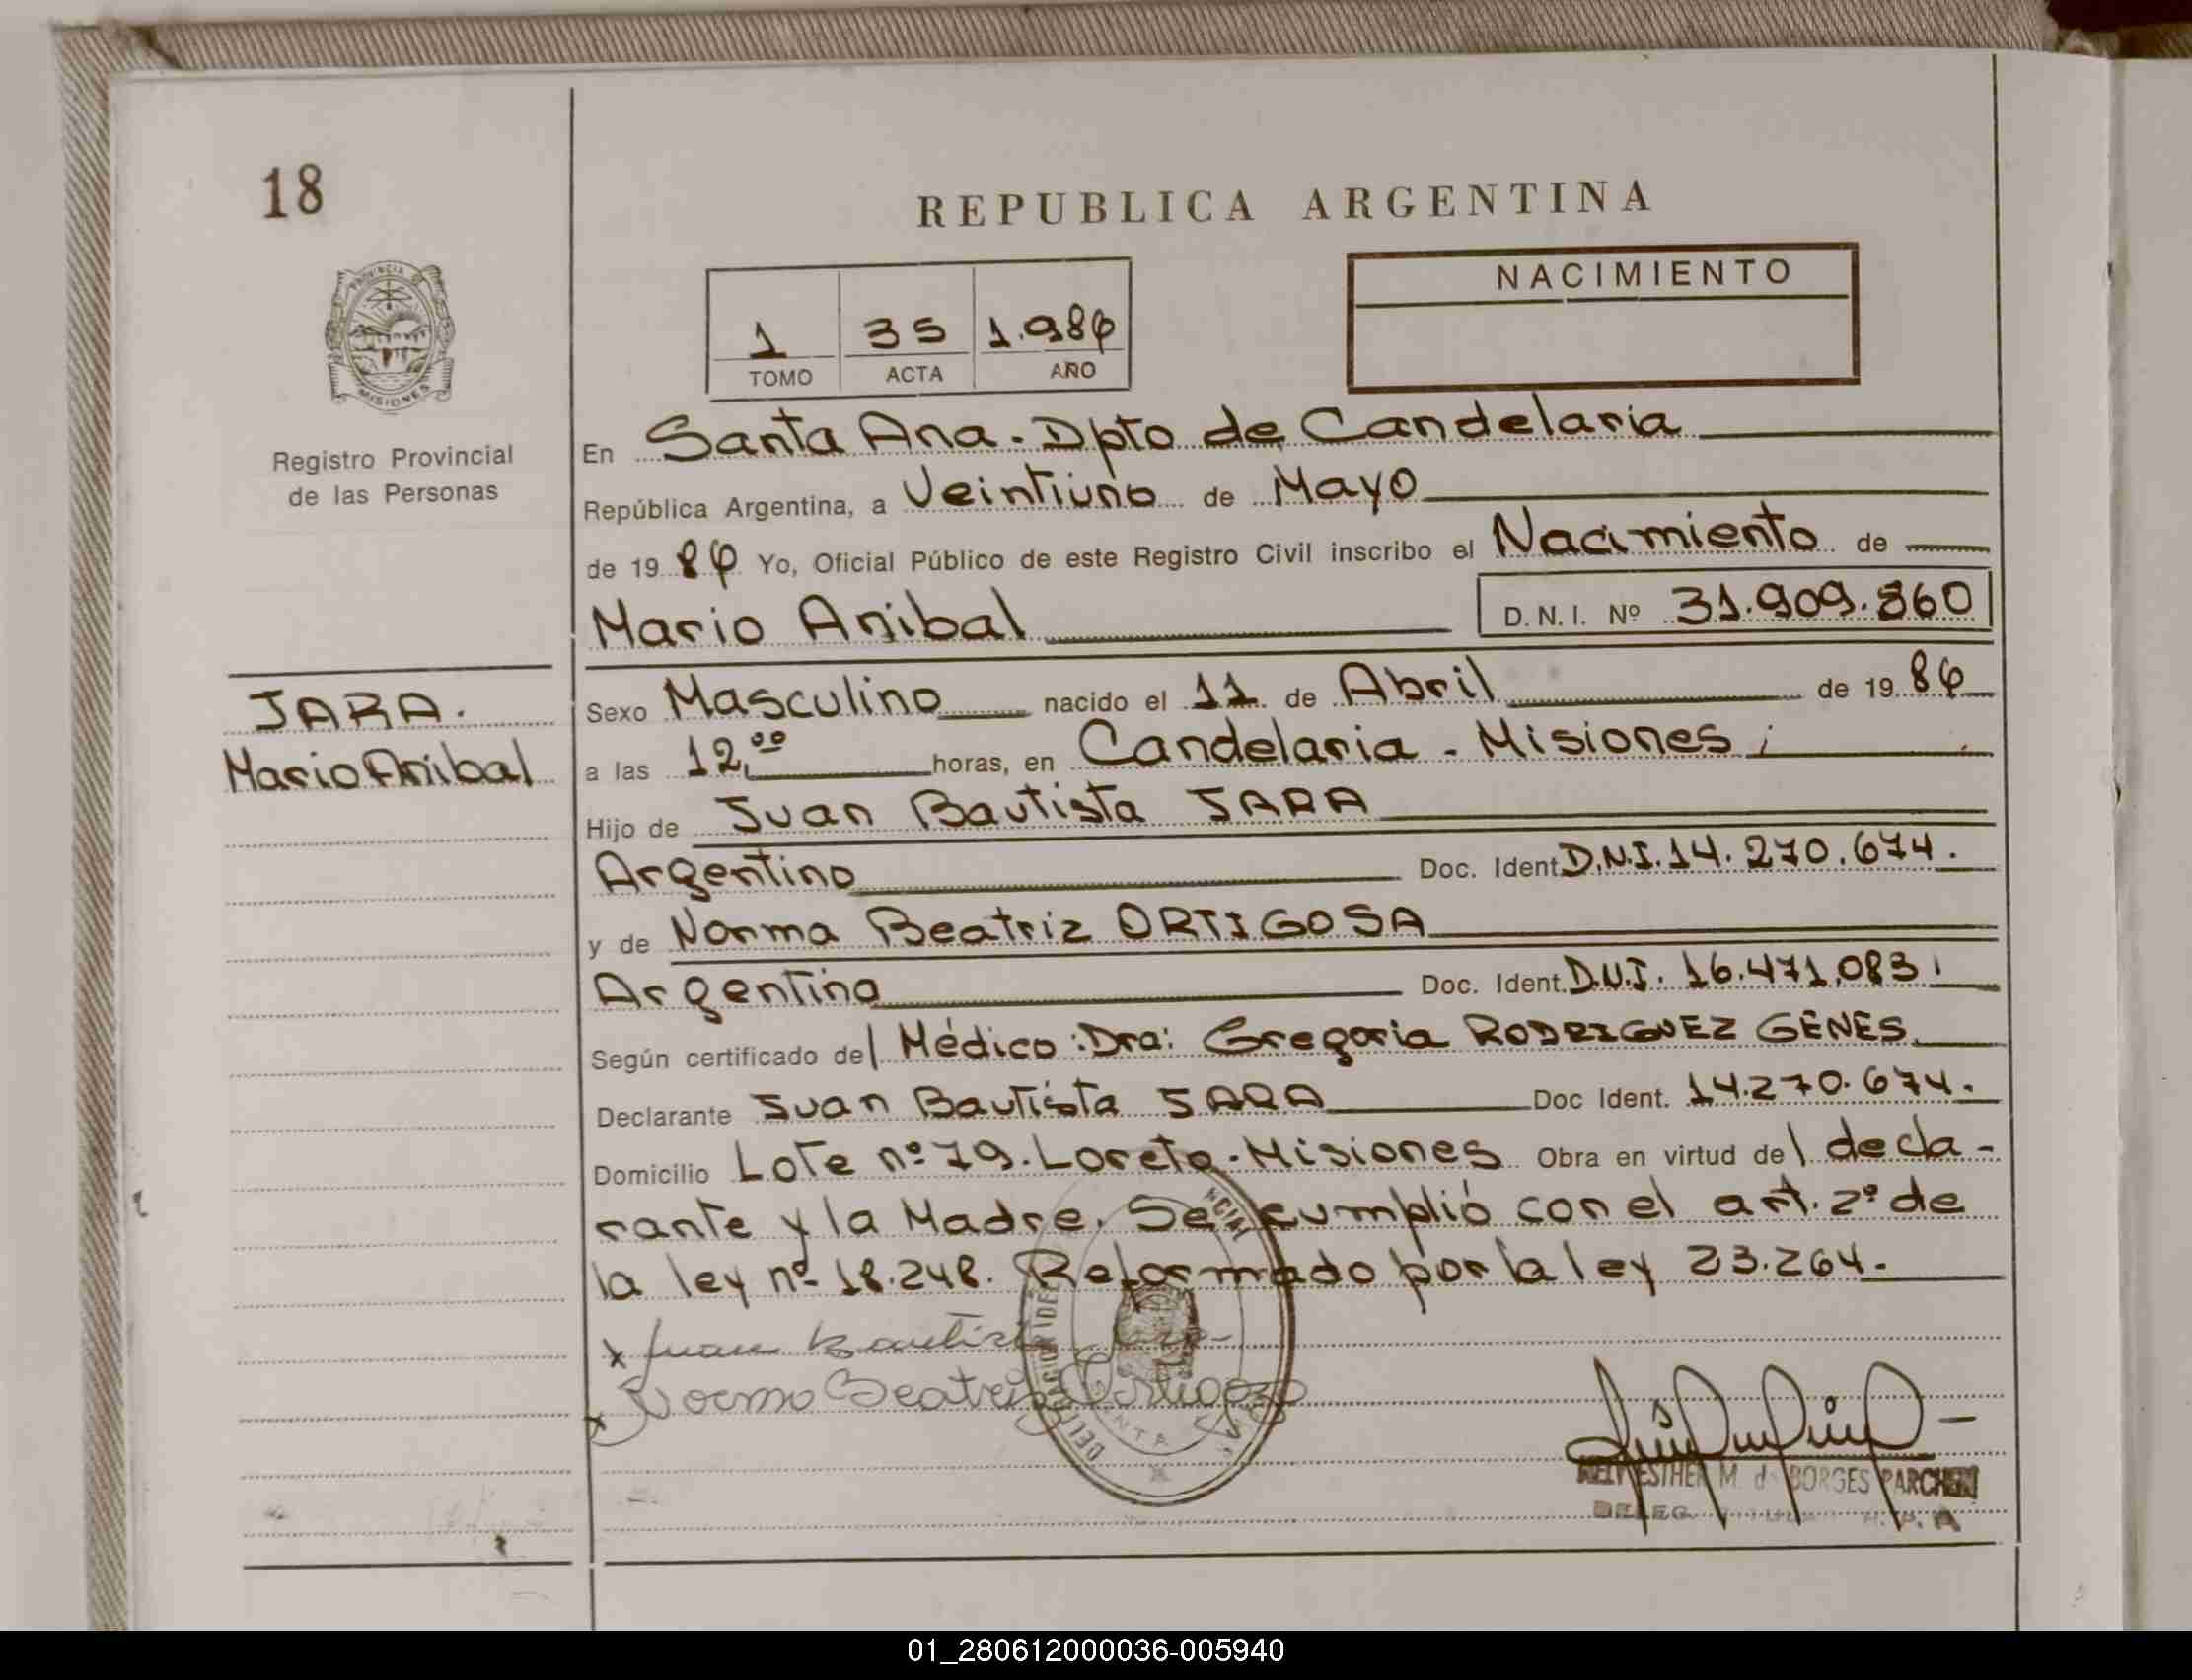 18
PROVINCIA DE
MISIONES
Registro Provincial
de las Personas
REPUBLICA ARGENTINA
1 35 1.986
TOMO ACTA AÑO
NACIMIENTO
En Santa Ana. Dpto de Candelaria
República Argentina, a Veintiuno de Mayo
de 19 86 Yo, Oficial Público de este Registro Civil inscribo el Nacimiento de
Mario Anibal D.N.I. Nº 31.909.860
JARA.
Mario Anibal
Sexo Masculino nacido el 11 de Abril de 19 86
a las 12,00 horas, en Candelaria - Misiones;
Hijo de Juan Bautista JARA
Argentino Doc. Ident. D.N.I. 14.270.674.
y de Norma Beatriz ORTIGOSA
Argentina Doc. Ident. D.N.I. 16.471.083.
Según certificado del Médico: Dra: Gregoria RODRIGUEZ GENES.
Declarante Juan Bautista JARA Doc Ident. 14.270.674.
Domicilio Lote nº 79. Loreto. Misiones Obra en virtud del decla-
rante y la Madre. Se cumplió con el art. 2º de
la ley nº 18.248. Reformado por la ley 23.264.
x Juan Bautista
x Norma Beatriz Ortigoza
DELEGACION SANTA ANA
ESTHER M. de BORGES PARCHEN
01_280612000036-005940